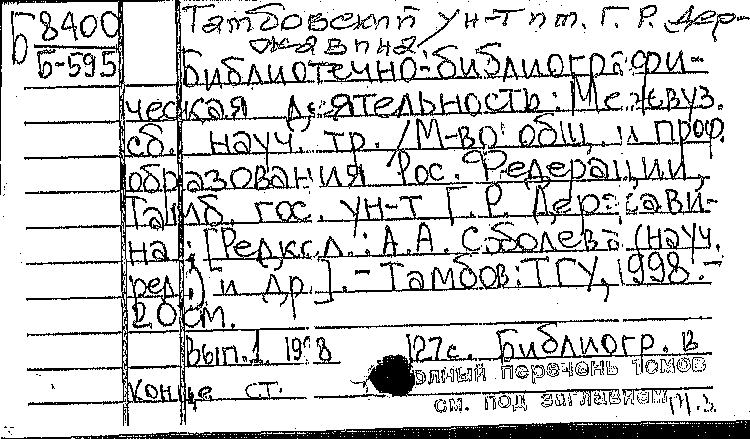 Б 8400
Б-595
Тамбовский ун-т им. Г. Р. Дер-
жавина
Библиотечно-библиографи-
ческая деятельность: Межвуз.
сб. науч. тр. / М-во общ. и проф.
образования Рос. Федерации,
Тамб. гос. ун-т Г. Р. Держави-
на; [Редкол.: А. А. Соболева (науч.
ред.) и др.]. - Тамбов: ТГУ, 1998. -
20 см.
Вып. 1. 1998 127 с. Библиогр. в
конце ст.
полный перечень томов
см. под заглавием